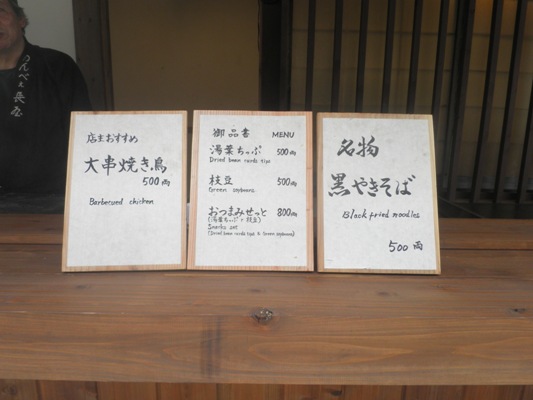 店主おすすめ
大串焼き鳥
500両
Barbecued chicken
御品書 MENU
湯葉ちっぷ 500両
Dried bean curds tips
枝豆 500両
Green soybeans
おつまみせっと 800両
(湯葉ちっぷ+枝豆)
Snacks set
(Dried bean curds tips & Green soybeans)
名物
黒やきそば
Black fried noodles
500両